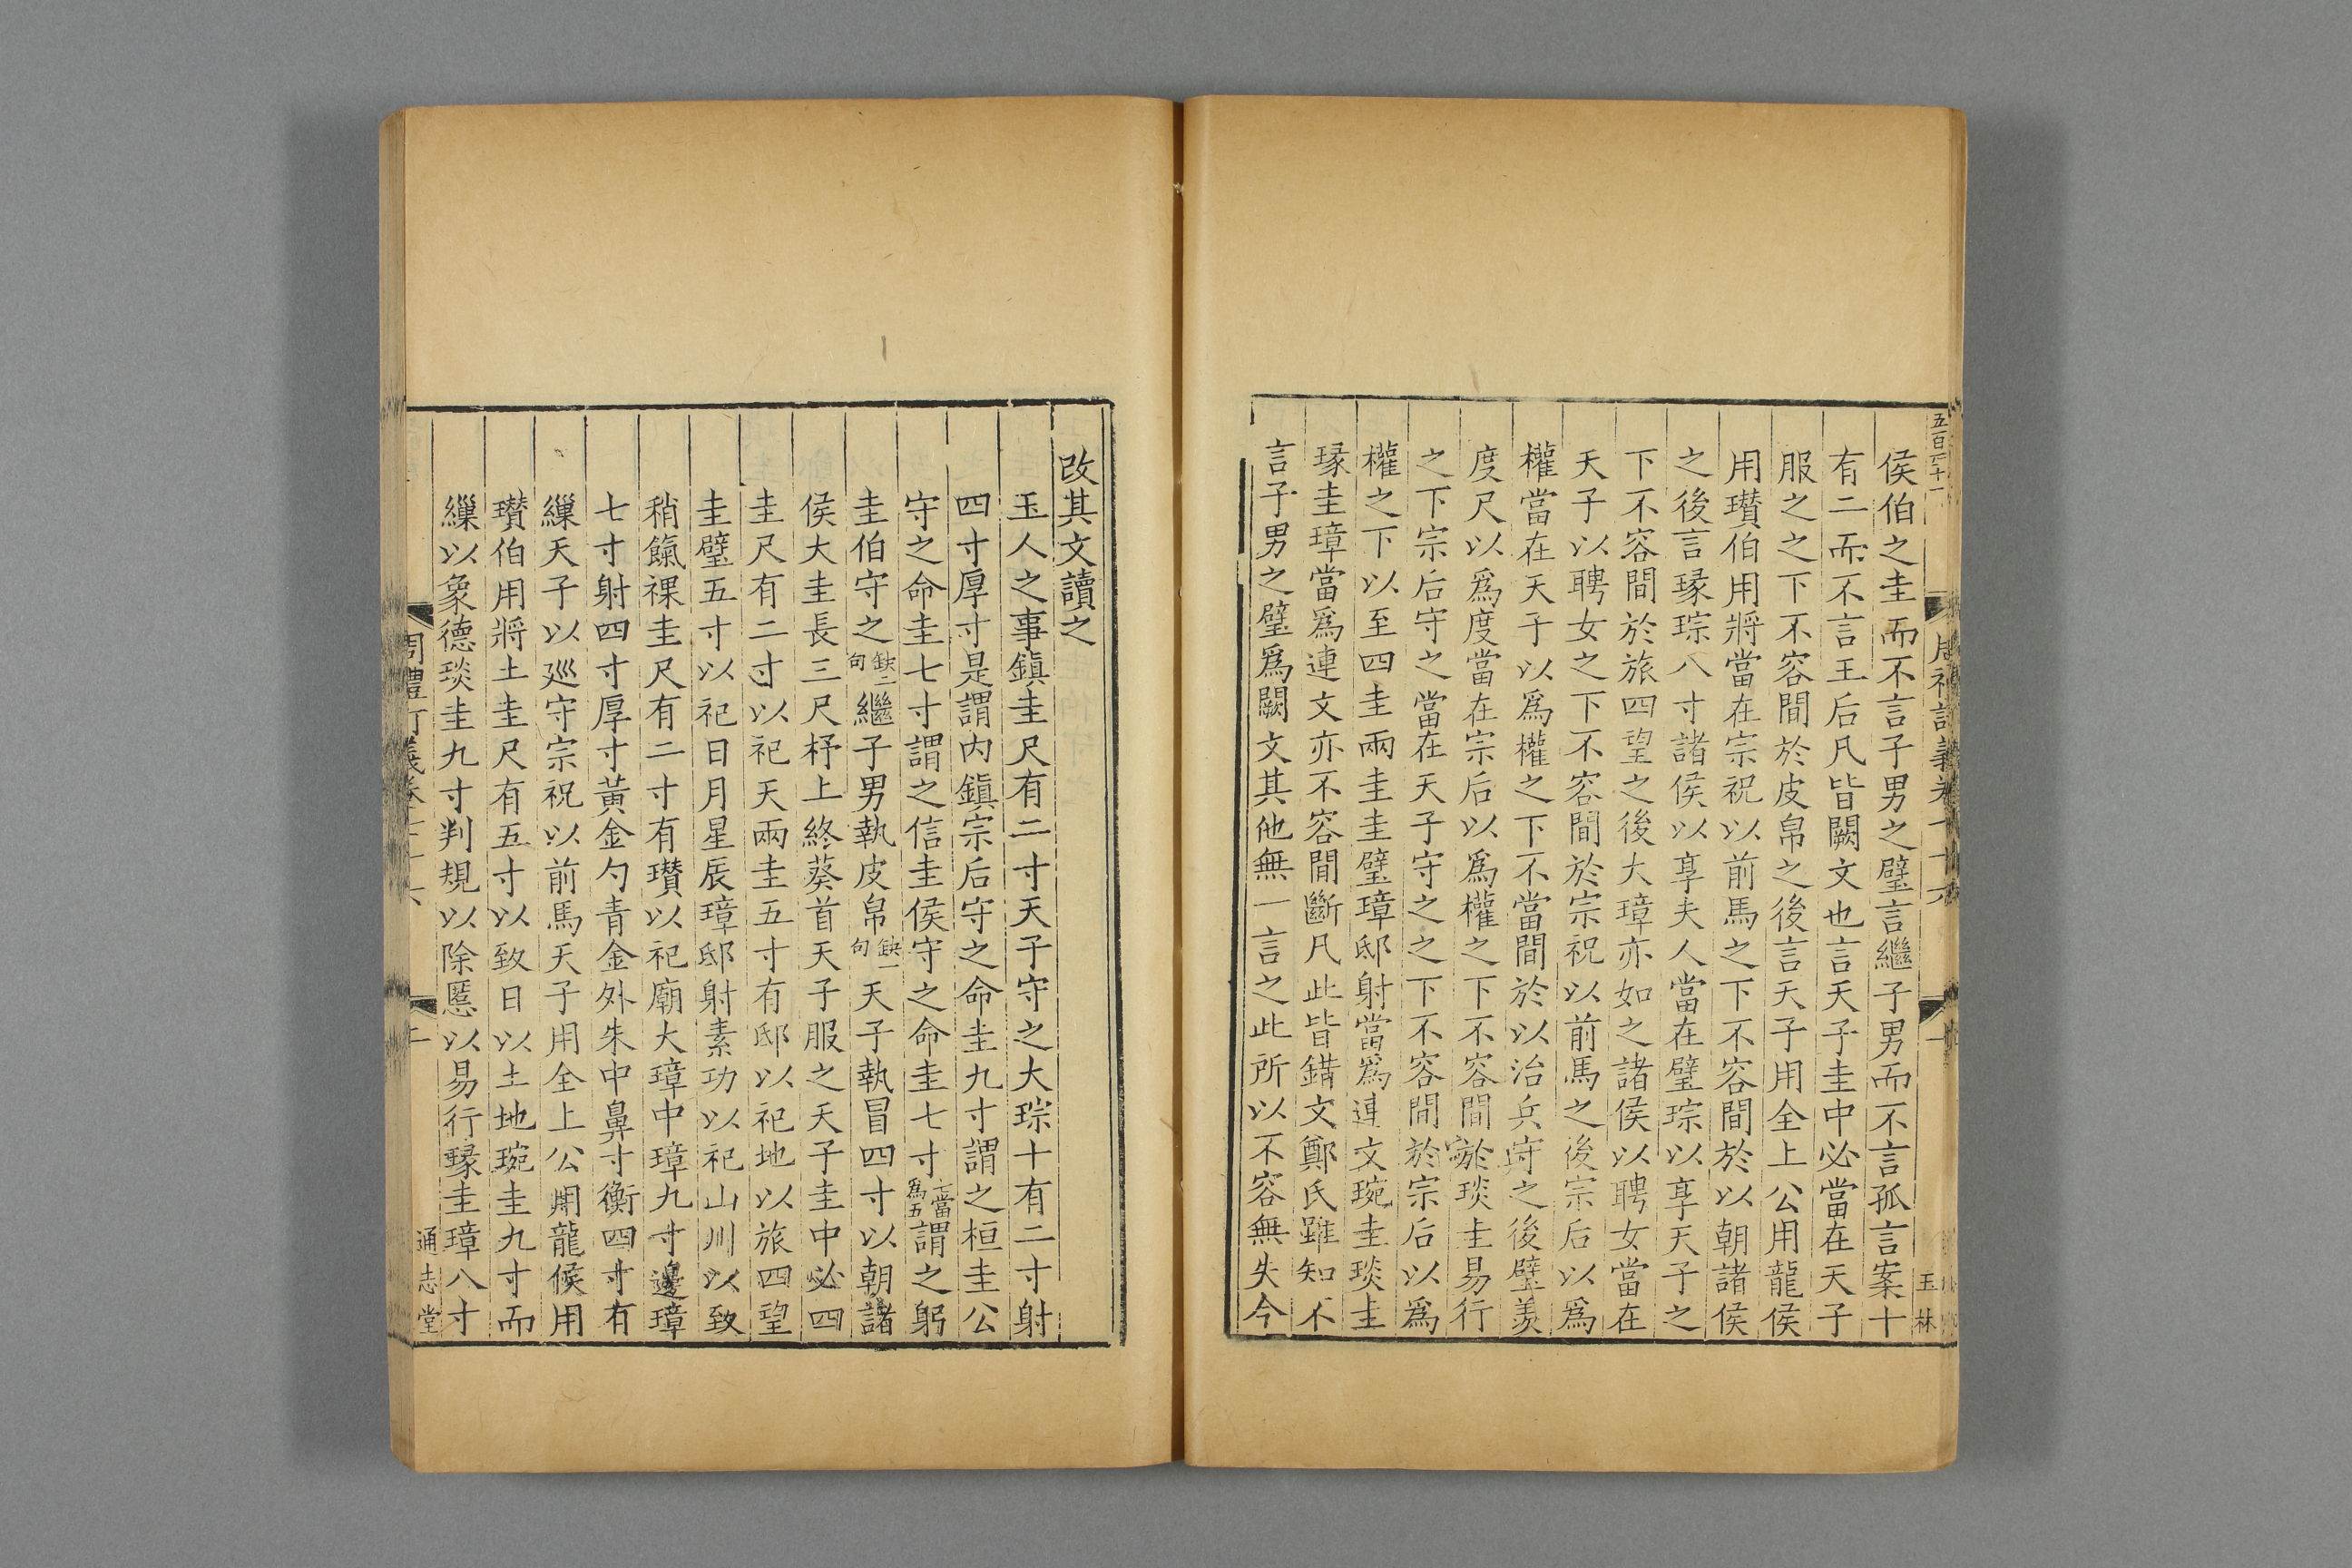 侯伯之圭而不言子男之璧言繼子男而不言孤言案十
有二而不言王后凡皆闕文也言天子圭中必當在天子
服之之下不容間於皮帛之後言天子用全上公用龍侯
用瓚伯用將當在宗祝以前馬之下不容間於以朝諸侯
之後言瑑琮八寸諸侯以享夫人當在璧琮以享天子之
下不容間於旅四望之後大璋亦如之諸侯以聘女當在
天子以聘女之下不容間於宗祝以前馬之後宗后以爲
權當在天子以爲權之下不當間於以治兵守之後璧羨
度尺以爲度當在宗后以爲權之下不容間於琰圭易行
之下宗后守之當在天子守之之下不容間於宗后以爲
權之下以至四圭兩圭圭璧璋邸射當爲連文琬圭琰圭
瑑圭璋當爲連文亦不容間斷凡此皆錯文鄭氏雖知不
言子男之璧爲闕文其他無一言之此所以不容無失今
玉林
改其文讀之
玉人之事鎮圭尺有二寸天子守之大琮十有二寸射
四寸厚寸是謂内鎮宗后守之命圭九寸謂之桓圭公
守之命圭七寸謂之信圭侯守之命圭七寸七當爲五謂之躬
圭伯守之缺二句繼子男執皮帛缺一句天子執冒四寸以朝諸
侯大圭長三尺杼上終葵首天子服之天子圭中必四
圭尺有二寸以祀天兩圭五寸有邸以祀地以旅四望
圭璧五寸以祀日月星辰璋邸射素功以祀山川以致
稍餼祼圭尺有二寸有瓚以祀廟大璋中璋九寸邊璋
七寸射四寸厚寸黃金勺青金外朱中鼻寸衡四寸有
繅天子以廵守宗祝以前馬天子用全上公用龍侯用
瓚伯用將土圭尺有五寸以致日以土地琬圭九寸而
繅以象德琰圭九寸判規以除慝以易行瑑圭璋八寸
通志堂